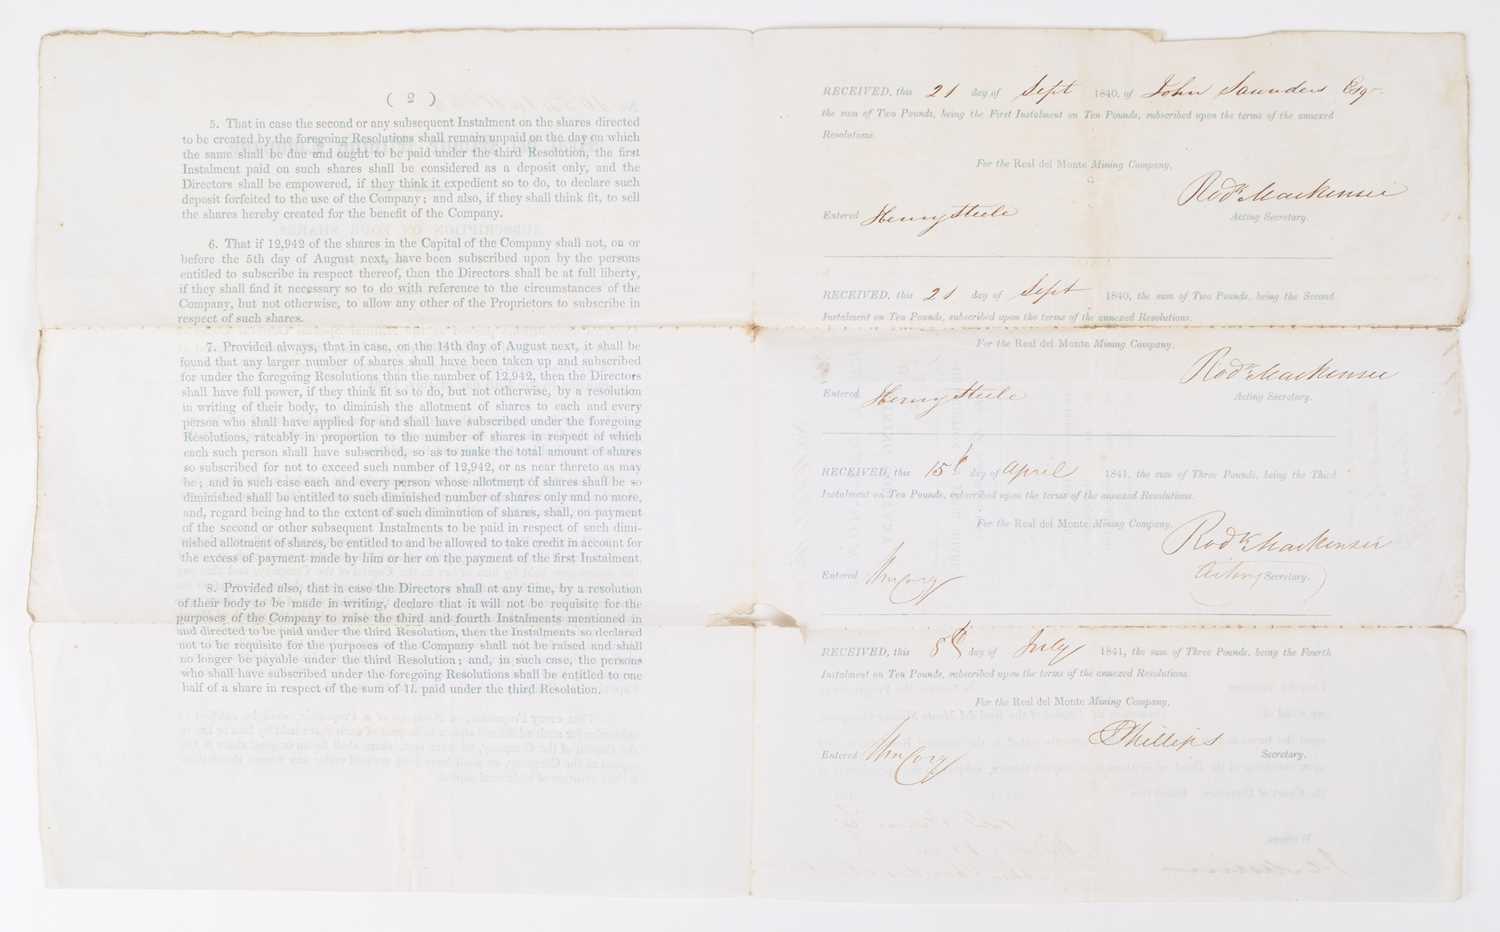 ( 2 )
5. That in case the second or any subsequent Instalment on the shares directed
to be created by the foregoing Resolutions shall remain unpaid on the day on which
the same shall be due and ought to be paid under the third Resolution, the first
Instalment paid on such shares shall be considered as a deposit only, and the
Directors shall be empowered, if they think it expedient so to do, to declare such
deposit forfeited to the use of the Company; and also, if they shall think fit, to sell
the shares hereby created for the benefit of the Company.
6. That if 12,942 of the shares in the Capital of the Company shall not, on or
before the 5th day of August next, have been subscribed upon by the persons
entitled to subscribe in respect thereof, then the Directors shall be at full liberty,
if they shall find it necessary so to do with reference to the circumstances of the
Company, but not otherwise, to allow any other of the Proprietors to subscribe in
respect of such shares.
7. Provided always, that in case, on the 14th day of August next, it shall be
found that any larger number of shares shall have been taken up and subscribed
for under the foregoing Resolutions than the number of 12,942, then the Directors
shall have full power, if they think fit so to do, but not otherwise, by a resolution
in writing of their body, to diminish the allotment of shares to each and every
person who shall have applied for and shall have subscribed under the foregoing
Resolutions, rateably in proportion to the number of shares in respect of which
each such person shall have subscribed, so as to make the total amount of shares
so subscribed for not to exceed such number of 12,942, or as near thereto as may
be; and in such case each and every person whose allotment of shares shall be so
diminished shall be entitled to such diminished number of shares only and no more,
and, regard being had to the extent of such diminution of shares, shall, on payment
of the second or other subsequent Instalments to be paid in respect of such dimi-
nished allotment of shares, be entitled to and be allowed to take credit in account for
the excess of payment made by him or her on the payment of the first Instalment.
8. Provided also, that in case the Directors shall at any time, by a resolution
of their body to be made in writing, declare that it will not be requisite for the
purposes of the Company to raise the third and fourth Instalments mentioned in
and directed to be paid under the third Resolution, then the Instalments so declared
not to be requisite for the purposes of the Company shall not be raised and shall
no longer be payable under the third Resolution; and, in such case, the persons
who shall have subscribed under the foregoing Resolutions shall be entitled to one
half of a share in respect of the sum of 1l. paid under the third Resolution.
RECEIVED, this 21 day of Sept 1840, of John Saunders Esqr.
the sum of Two Pounds, being the First Instalment on Ten Pounds, subscribed upon the terms of the annexed
Resolutions.
For the Real del Monte Mining Company,
Rodk. Mackensie
Entered Henry Steele Acting Secretary.
RECEIVED, this 21 day of Sept 1840, the sum of Two Pounds, being the Second
Instalment on Ten Pounds, subscribed upon the terms of the annexed Resolutions.
For the Real del Monte Mining Company,
Rodk. Mackensie
Entered Henry Steele Acting Secretary.
RECEIVED, this 15th day of April 1841, the sum of Three Pounds, being the Third
Instalment on Ten Pounds, subscribed upon the terms of the annexed Resolutions.
For the Real del Monte Mining Company,
Rodk. Mackensie
Entered Wm Cory Acting Secretary.
RECEIVED, this 8th day of July 1841, the sum of Three Pounds, being the Fourth
Instalment on Ten Pounds, subscribed upon the terms of the annexed Resolutions.
For the Real del Monte Mining Company,
Phillips
Entered Wm Cory Secretary.